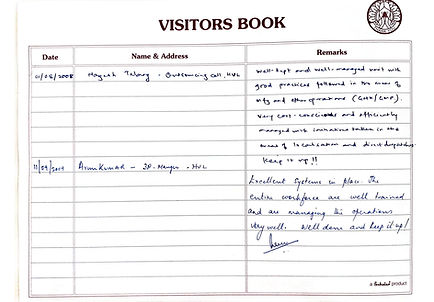 VISITORS BOOK
Date Name & Address Remarks
01/08/2008 Outsourcing cell. HUL Well-kept and well-managed unit with
good practices followed in the areas of
Mfg and other operations (GHK/GMP).
Very cost-conscious and efficiently
managed with initiatives taken in the
areas of localisation and direct despatches.
Keep it up!!
11/09/2009 ArunKumar - 3P- - HUL
Excellent Systems in place. The
entire workforce are well trained
and are managing the operations
very well. Well done and keep it up!
a product